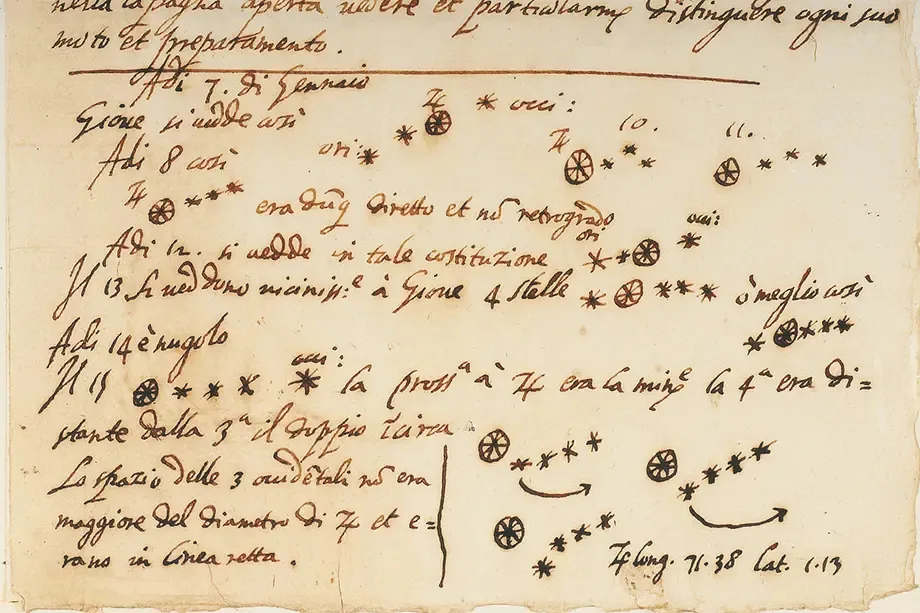 nella capagna aperta vedere et particularmẽ distinguere ogni suo
moto et preparamento.
Adi 7. di Gennaio
Giove si vedde così ♃ occi:
ori:
Adi 8 così ♃ 10. 11.
♃ era dũq diretto et nõ retrogrado
Adi 12. si vedde in tale costituzione ori occi:
Il 13 si veddono viciniss:ᵉ à Giove 4 stelle ò meglio così
Adi 14 è nugolo
Il 15 occi: la prossᵃ à ♃ era la minᵉ la 4ᵃ era di=
stante dalla 3ᵃ il doppio circa
Lo spazio delle 3 occidẽtali nõ era
maggiore del diametro di ♃ et e=
rano in linea retta.
♃ long. 71.38 lat. 1.13